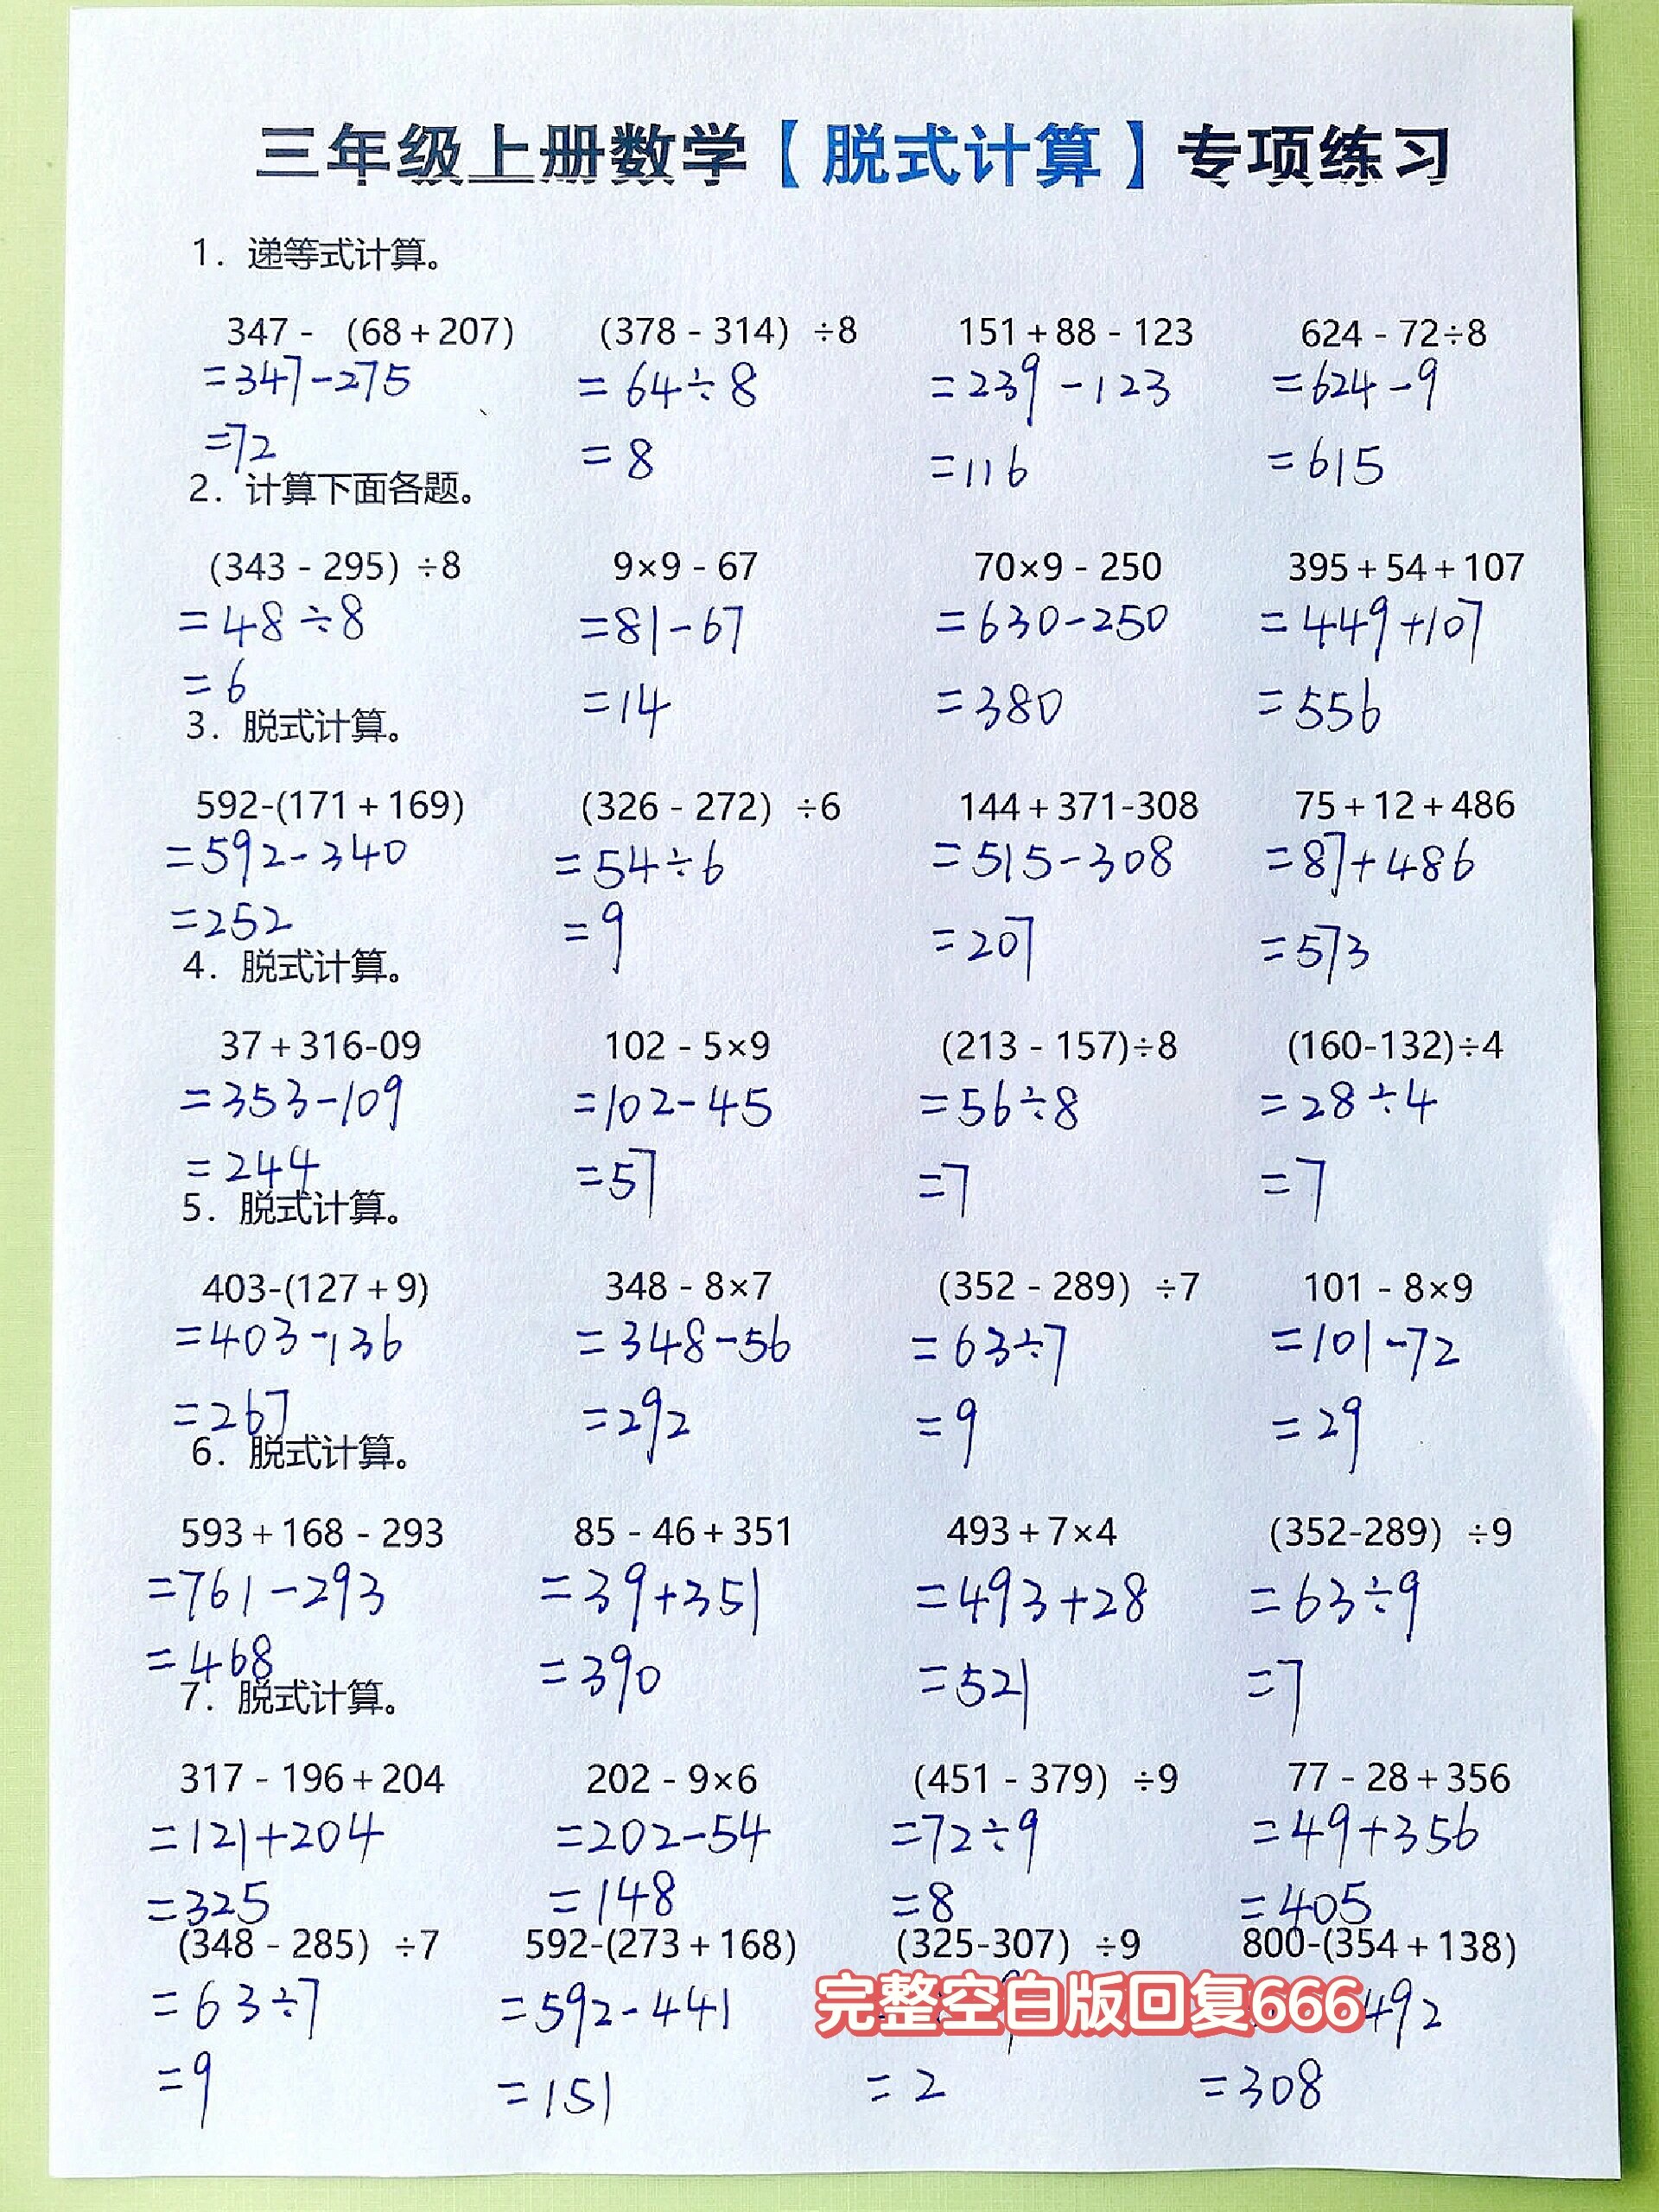 三年级上册数学【脱式计算】专项练习
1. 递等式计算。
347 - （68 + 207） （378 - 314）÷8 151 + 88 - 123 624 - 72÷8
=347-275 =64÷8 =239-123 =624-9
=72 =8 =116 =615
2. 计算下面各题。
（343 - 295）÷8 9×9 - 67 70×9 - 250 395 + 54 + 107
=48÷8 =81-67 =630-250 =449+107
=6 =14 =380 =556
3. 脱式计算。
592-(171 + 169) （326 - 272）÷6 144 + 371-308 75 + 12 + 486
=592-340 =54÷6 =515-308 =87+486
=252 =9 =207 =573
4. 脱式计算。
37 + 316-09 102 - 5×9 (213 - 157)÷8 (160-132)÷4
=353-109 =102-45 =56÷8 =28÷4
=244 =57 =7 =7
5. 脱式计算。
403-(127 + 9) 348 - 8×7 （352 - 289）÷7 101 - 8×9
=403-136 =348-56 =63÷7 =101-72
=267 =292 =9 =29
6. 脱式计算。
593 + 168 - 293 85 - 46 + 351 493 + 7×4 （352-289）÷9
=761-293 =39+351 =493+28 =63÷9
=468 =390 =521 =7
7. 脱式计算。
317 - 196 + 204 202 - 9×6 （451 - 379）÷9 77 - 28 + 356
=121+204 =202-54 =72÷9 =49+356
=325 =148 =8 =405
（348 - 285）÷7 592-(273 + 168) （325-307）÷9 800-(354 + 138)
=63÷7 =592-441 492
完整空白版回复666
=9 =151 =2 =308